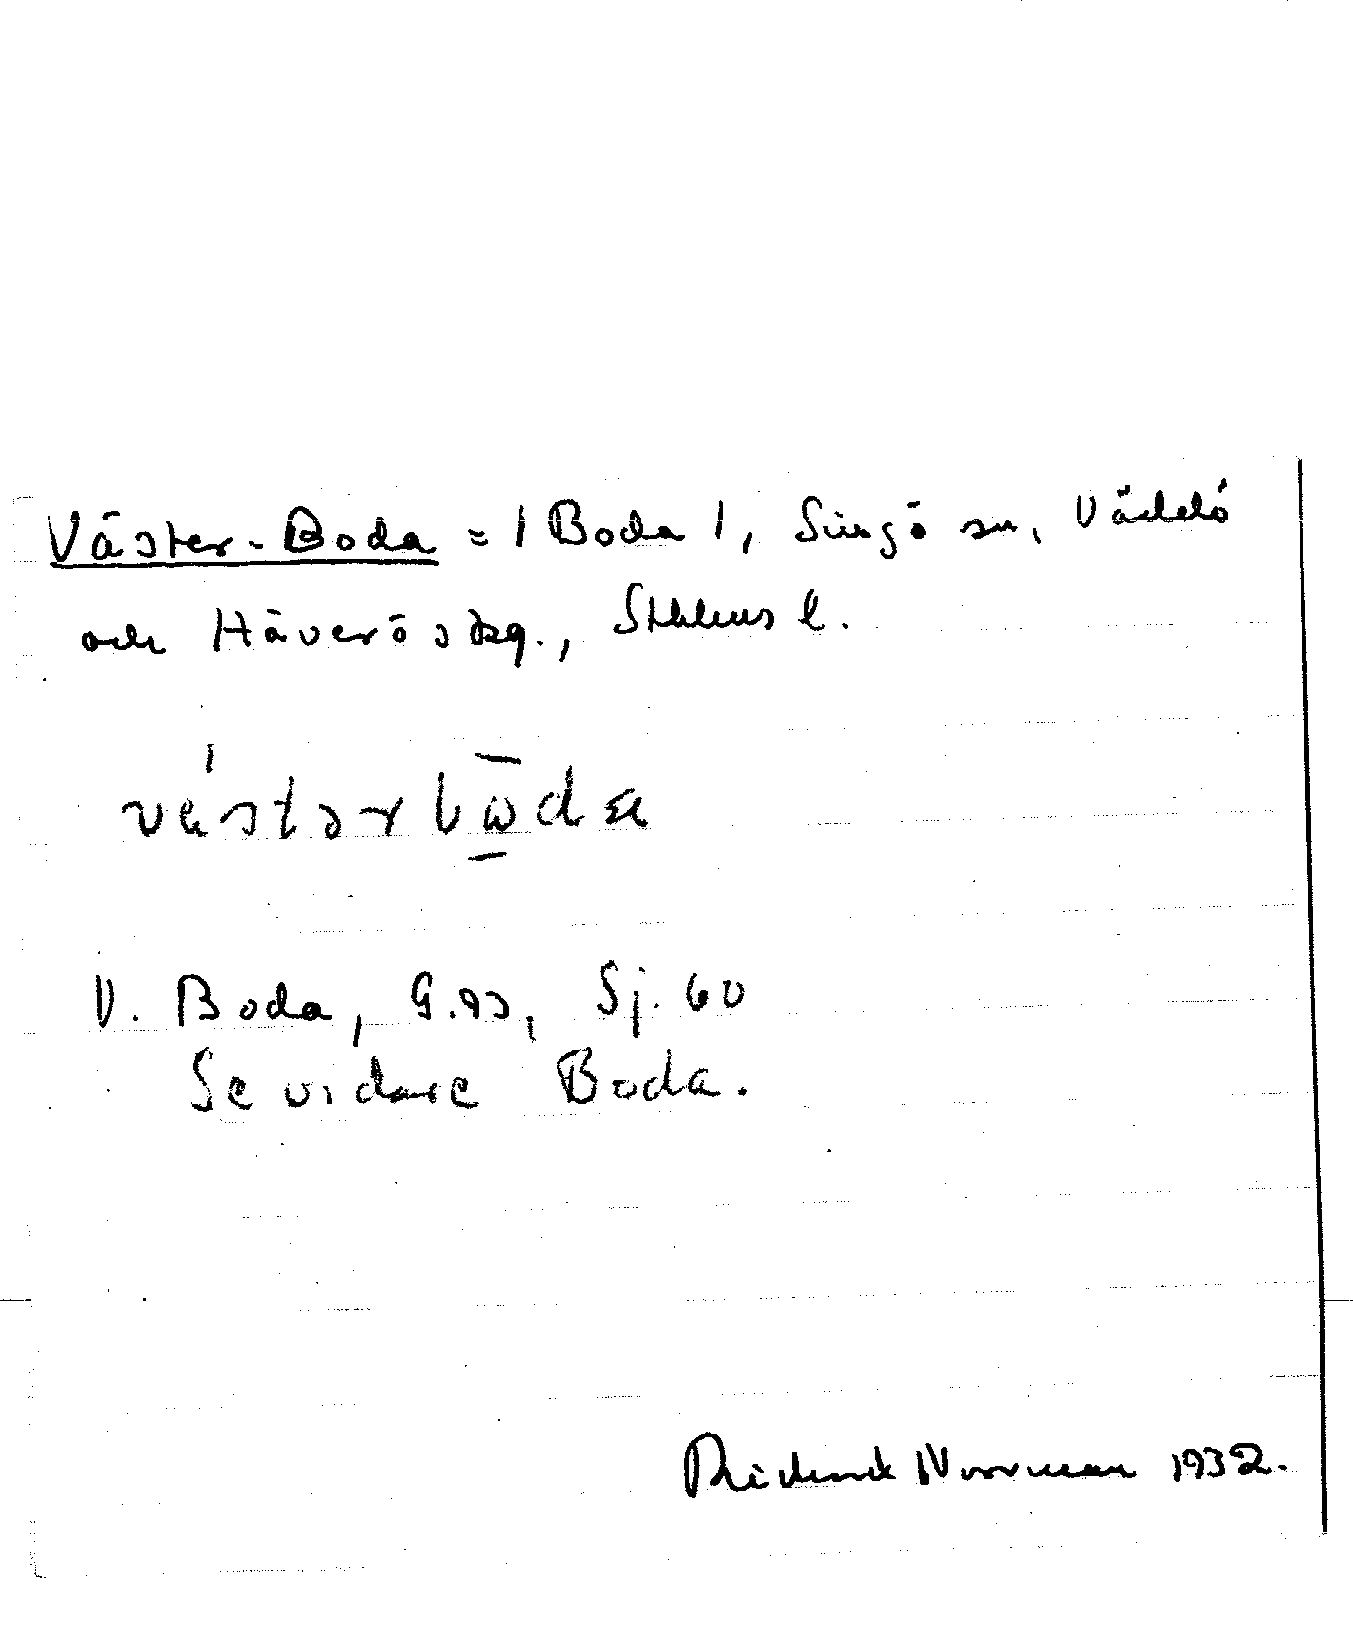 Väster-Boda = 1 Boda 1, Singö sn, Väddö
och Häverö skg., Sthlms l.
västərbωda
V. Boda, G.93, Sj. 60
Se vidare Boda.
Norrman 1932.